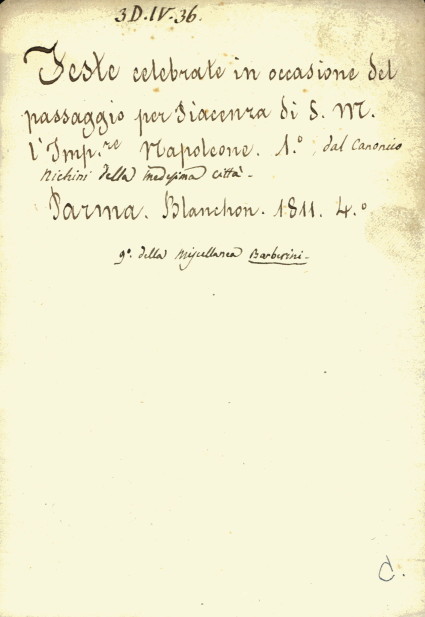 3 D. IV. 36.
Feste celebrate in occasione del
passaggio per Piacenza di S. M.
l'Imp.re Napoleone. 1.° dal Canonico
Nichini della medesima città.
Parma. Blanchon. 1811. 4.°
9°. della Miscellanea Barberini.
C.